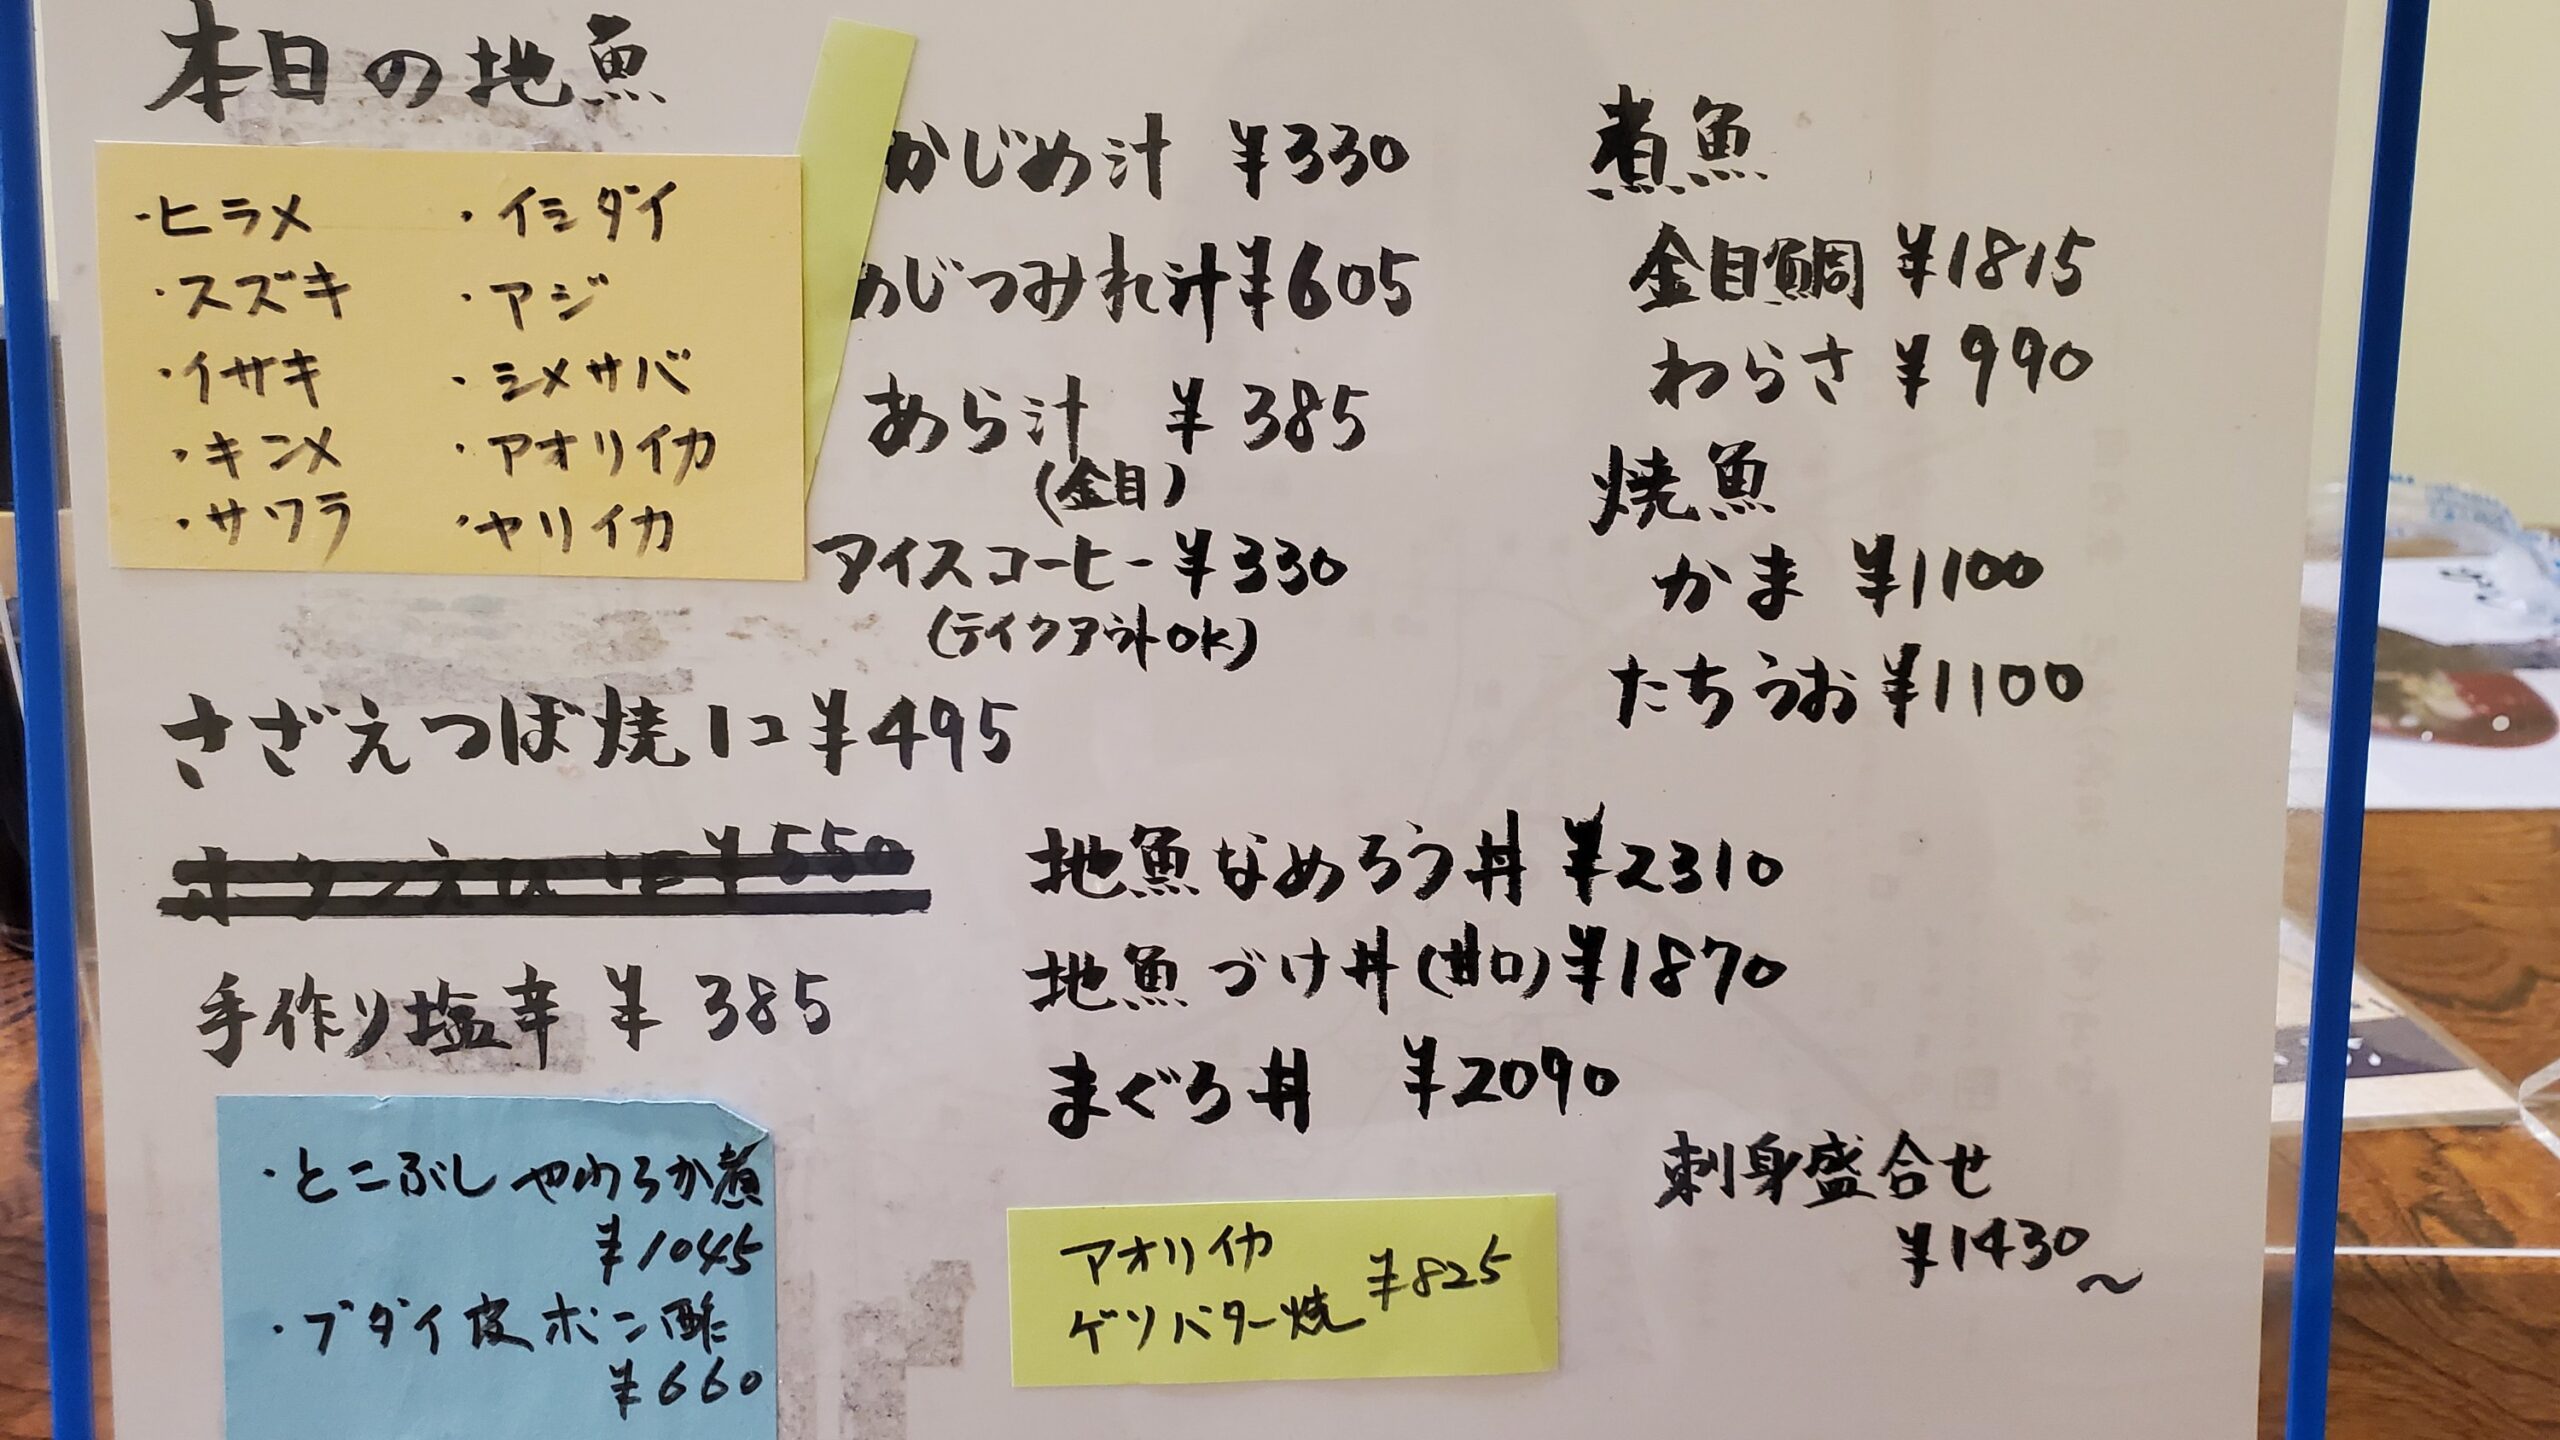 本日の地魚
・ヒラメ
・スズキ
・イサキ
・キンメ
・サワラ
・イシダイ
・アジ
・シメサバ
・アオリイカ
・ヤリイカ
かじめ汁 ¥330
あじつみれ汁¥605
あら汁 ¥385
(金目)
アイスコーヒー¥330
(テイクアウトOK)
煮魚
金目鯛 ¥1815
わらさ ¥990
焼魚
かま ¥1100
たちうお¥1100
さざえつぼ焼1コ¥495
ボタンえび 1匹¥550
手作り塩辛 ¥385
地魚なめろう丼 ¥2310
地魚づけ丼(甘口)¥1870
まぐろ丼 ¥2090
刺身盛合せ
¥1430〜
・とこぶしやわらか煮
¥1045
・ブダイ皮ポン酢
¥660
アオリイカ
ゲソバター焼 ¥825